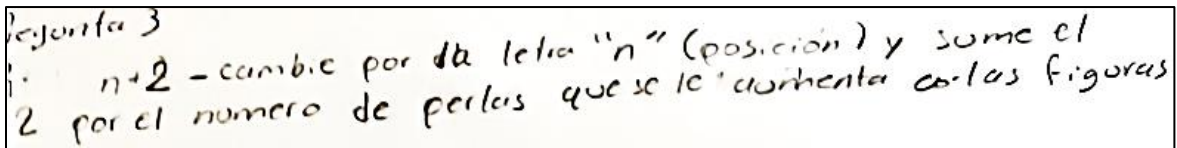 Pegunta 3
n+2 - cambie por la letra "n" (posición) y sume el
2 por el numero de perlas que se le aumenta las figuras